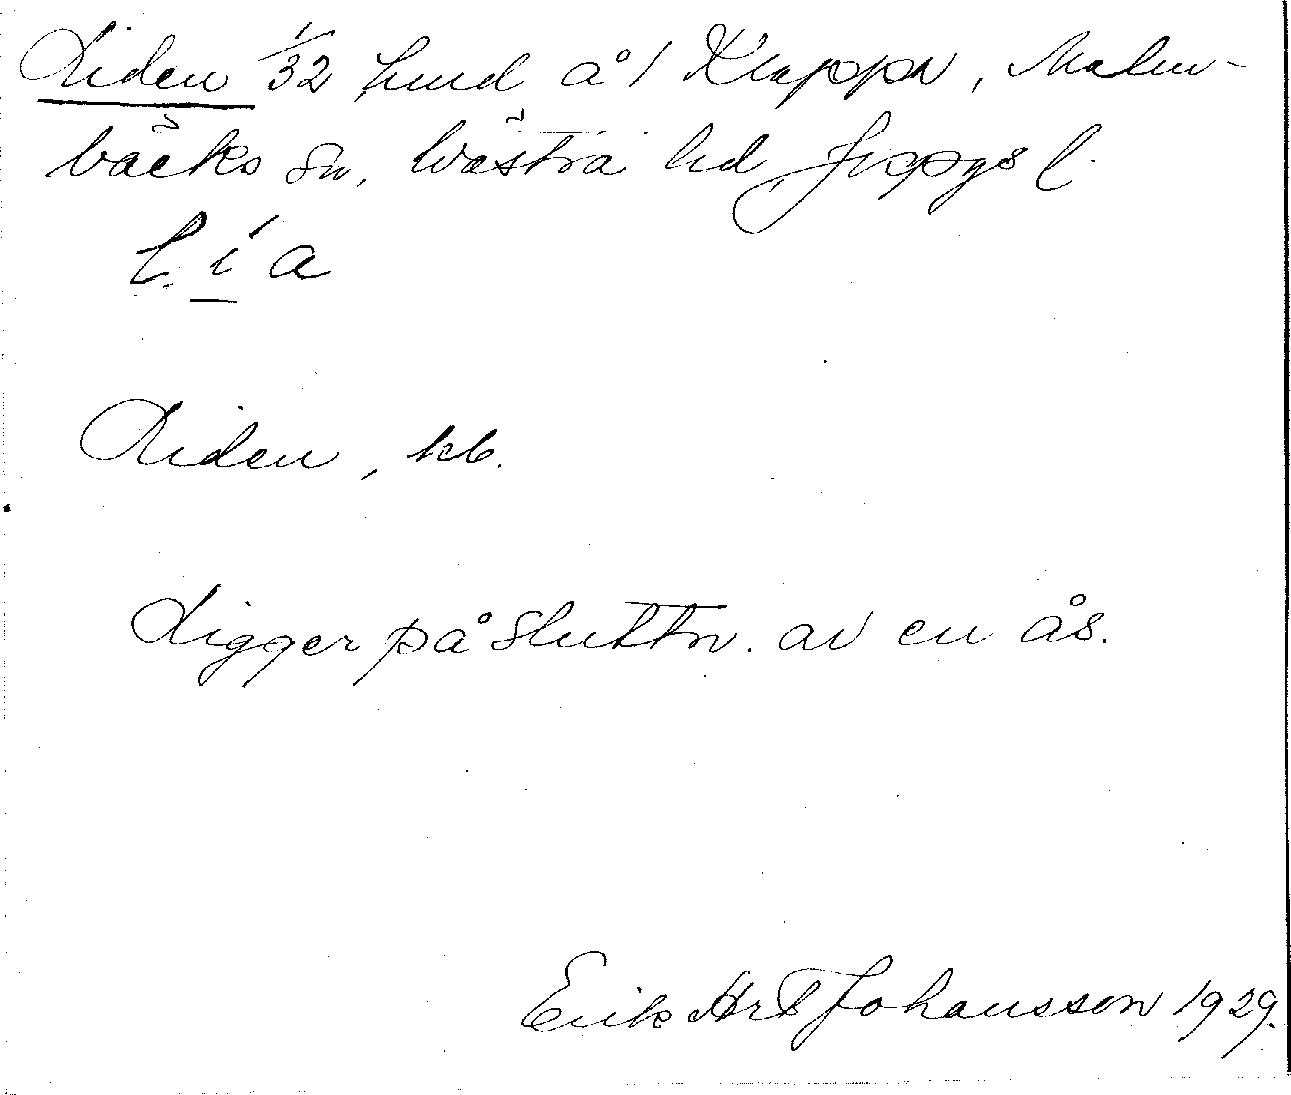 Liden 1/32 hmd å 1 Klappa, Malm-
bäcks sn, Västra hd, Jkpgs l.
l. í a
Liden, kb.
Ligger på sluttn. av en ås.
Erik Johansson 1929.